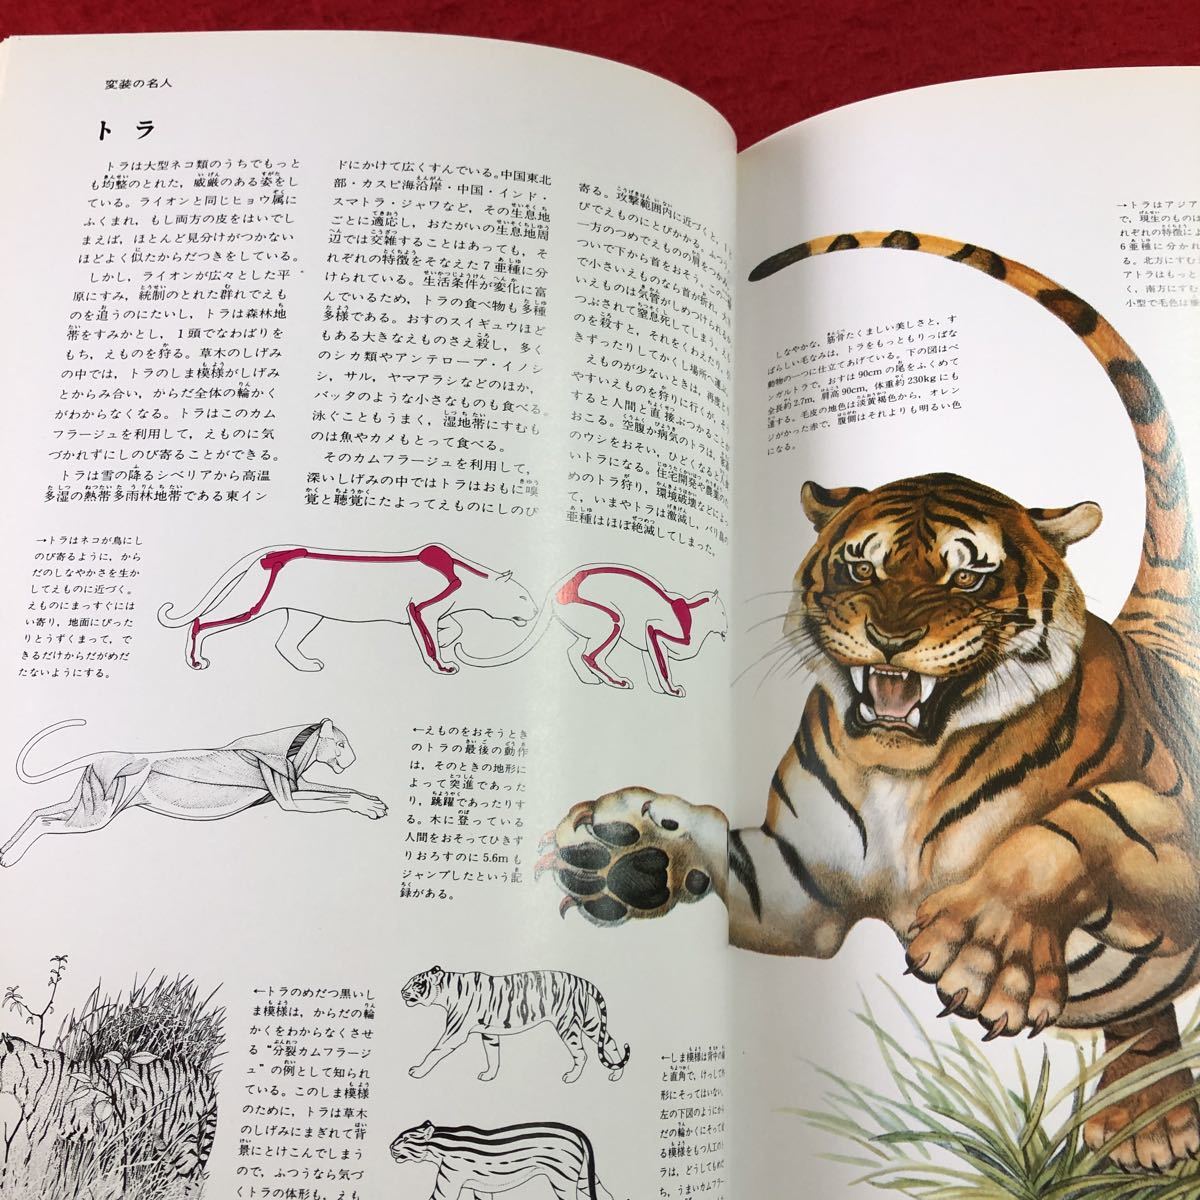 変装の名人
トラ
トラは大型ネコ類のうちでもっと
も均整のとれた，威厳のある姿をし
ている。ライオンと同じヒョウ属に
ふくまれ，もし両方の皮をはいでし
まえば，ほとんど見分けがつかない
ほどよく似たからだつきをしている。
しかし，ライオンが広々とした平
原にすみ，統制のとれた群れでえも
のを追うのにたいし，トラは森林地
帯をすみかとし，1頭でなわばりを
もち，えものを狩る。草木のしげみ
の中では，トラのしま模様がしげみ
とからみ合い，からだ全体の輪かく
がわからなくなる。トラはこのカム
フラージュを利用して，えものに気
づかれずにしのび寄ることができる。
トラは雪の降るシベリアから高温
多湿の熱帯多雨林地帯である東イン
ドにかけて広くすんでいる。中国東北
部・カスピ海沿岸・中国・インド・
スマトラ・ジャワなど，その生息地
ごとに適応し，おたがいの生息地周
辺では交雑することはあっても，そ
れぞれの特徴をそなえた7亜種に分
けられている。生活条件が変化に富
んでいるため，トラの食べ物も多種
多様である。おすのスイギュウほど
もある大きなえものさえ殺し，多く
のシカ類やアンテロープ・イノシ
シ，サル，ヤマアラシなどのほか，
バッタのような小さなものも食べる。
泳ぐこともうまく，湿地帯にすむも
のは魚やカメもとって食べる。
そのカムフラージュを利用して，
深いしげみの中ではトラはおもに嗅
覚と聴覚にたよってえものにしのび
寄る。攻撃範囲内に近づくと，1と
びでえものにとびかかる。ふつう，
一方のつめでえものの肩をつかみ，
ついで下から首をおそう。この一撃
で小さいえものなら首が折れ，大き
いえものは気管がしめつけられるか
つぶされて窒息死してしまう。えも
のを殺すと，それをくわえたり，ひ
きずったりしてかくし場所へ運ぶ。
えものが少ないときは，再度とり
やすいえものを狩りに行くが，
すると人間と直接ぶつかることが
おこる。空腹か病気のトラは，家畜
のウシをおそい，ひどくなると人食
いトラになる。住宅開発や農業のた
めのトラ狩り，環境破壊などによっ
て，いまやトラは激減し，バリ島の
亜種はほぼ絶滅してしまった。
→トラはネコが鳥にし
のび寄るように，から
だのしなやかさを生か
してえものに近づく。
えものにまっすぐには
い寄り，地面にぴった
りとうずくまって，で
きるだけからだがめだ
たないようにする。
←えものをおそうとき
のトラの最後の動作
は，そのときの地形に
よって突進であった
り，跳躍であったりす
る。木に登っている
人間をおそってひきず
りおろすのに5.6mも
ジャンプしたという記
録がある。
←トラのめだつ黒いし
ま模様は，からだの輪
かくをわからなくさせ
る“分裂カムフラージ
ュ”の例として知られ
ている。このしま模様
のために，トラは草木
のしげみにまぎれて背
景にとけこんでしまう
ので，ふつうなら気づ
くトラの体形も，えも
←しま模様は背中の線
と直角で，けっして体
形にそってはいない。
左の下図のようにから
だの輪かくにそって走
る模様をもつ人工のト
ラは，どうしてもめだ
ち，うまいカムフラー
しなやかな，筋骨たくましい美しさと，す
ばらしい毛なみは，トラをもっともりっぱな
動物の一つに仕立てあげている。下の図はベ
ンガルトラで，おすは90cmの尾をふくめて
全長約2.7m，肩高90cm，体重約230kgにも
達する。毛皮の地色は淡黄褐色から，オレン
ジがかった赤で，腹側はそれよりも明るい色
になる。
→トラはアジア
で，現生のものは
れぞれの特徴によ
6亜種に分かれ
る。北方にすむ
アトラはもっと
く，南方にすむ
小型で毛色は